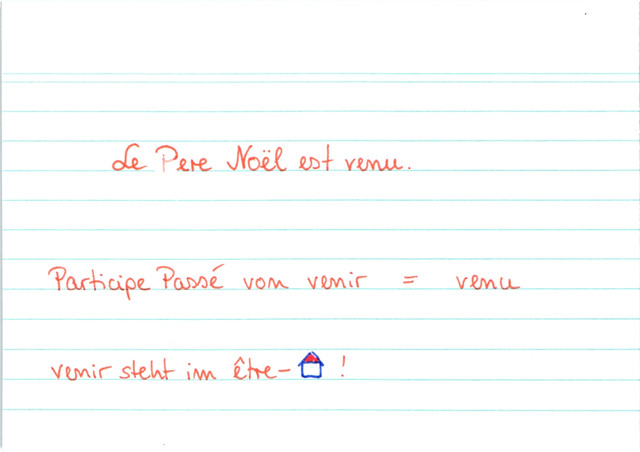 Le Pere Noël est venu.
Participe Passé von venir = venu
venir steht im être- !